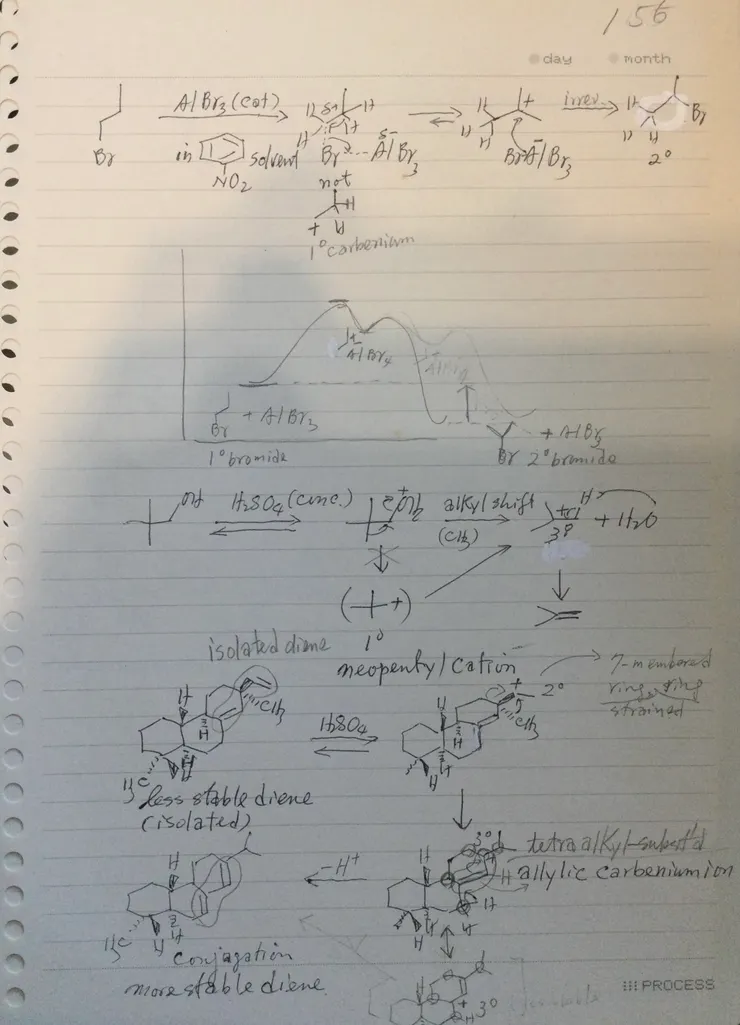 156
day month
AlBr3 (cat)
in NO2 solvent
H δ+ H
H H
Br --- AlBr3 δ-
not
H
+ H
1° carbenium
H +
H H
Br-AlBr3
irrev.
H Br
H H
2°
AlBr4
Br + AlBr3
1° bromide
Br + AlBr3
2° bromide
OH H2SO4 (conc.) +OH2 alkyl shift H
(CH3) 3° + H2O
( +)
1°
neopentyl cation
isolated diene
7-membered
ring, ring
strained
H H CH3
H2SO4
H H + 2° CH3
H3C H
less stable diene
(isolated)
H
3° tetraalkyl-subst'd
H allylic carbenium ion
-H+
H H
H3C H H
conjugation
more stable diene
H H H H
H + 3°
H
PROCESS